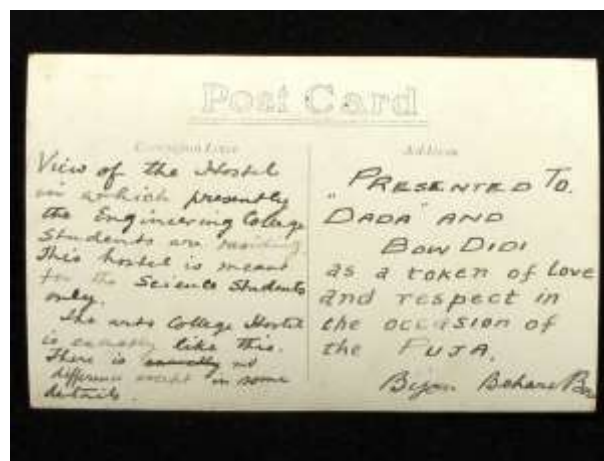 Post Card
Correspondence
Address
View of the Hostel
in which presently
the Engineering College
Students are residing.
This hostel is meant
for the Science Students
only.
The arts College Hostel
is exactly like this.
There is exactly no
difference except in some
details.
PRESENTED TO.
"DADA" AND
BOW DIDI
as a token of love
and respect in
the occasion of
the PUJA.
Bijan Behari